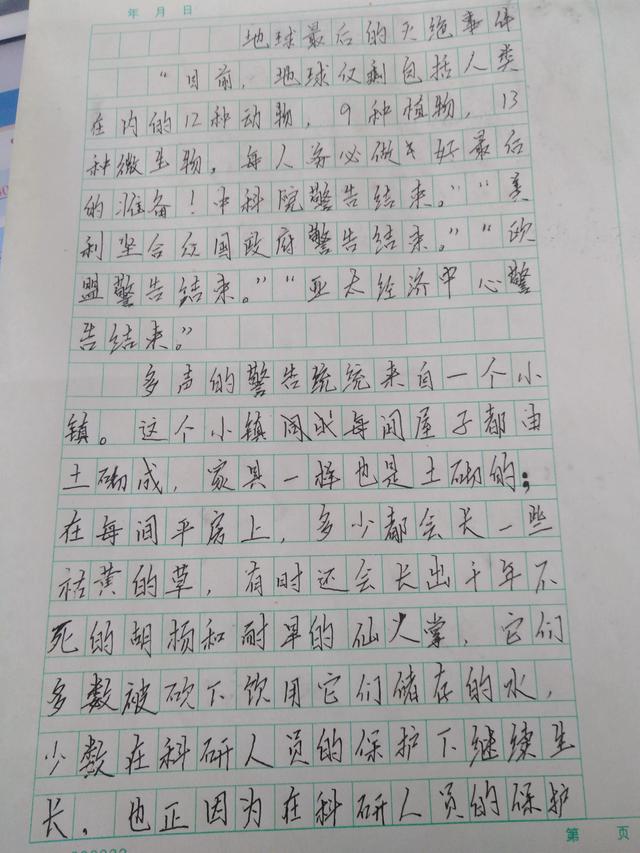 年 月 日
地球最后的灭绝事件
“目前，地球仅剩包括人类
在内的12种动物，9种植物，13
种微生物，每人务必做好最后
的准备！中科院警告结束。”“美
利坚合众国政府警告结束。”“欧
盟警告结束。”“亚太经济中心警
告结束。”
多声的警告统统来自一个小
镇。这个小镇闻每间屋子都由
土砌成，家具一样也是土砌的；
在每间平房上，多少都会长一些
枯黄的草，有时还会长出千年不
死的胡杨和耐旱的仙人掌，它们
多数被砍下饮用它们储存的水，
少数在科研人员的保护下继续生
长，也正因为在科研人员的保护
第 页